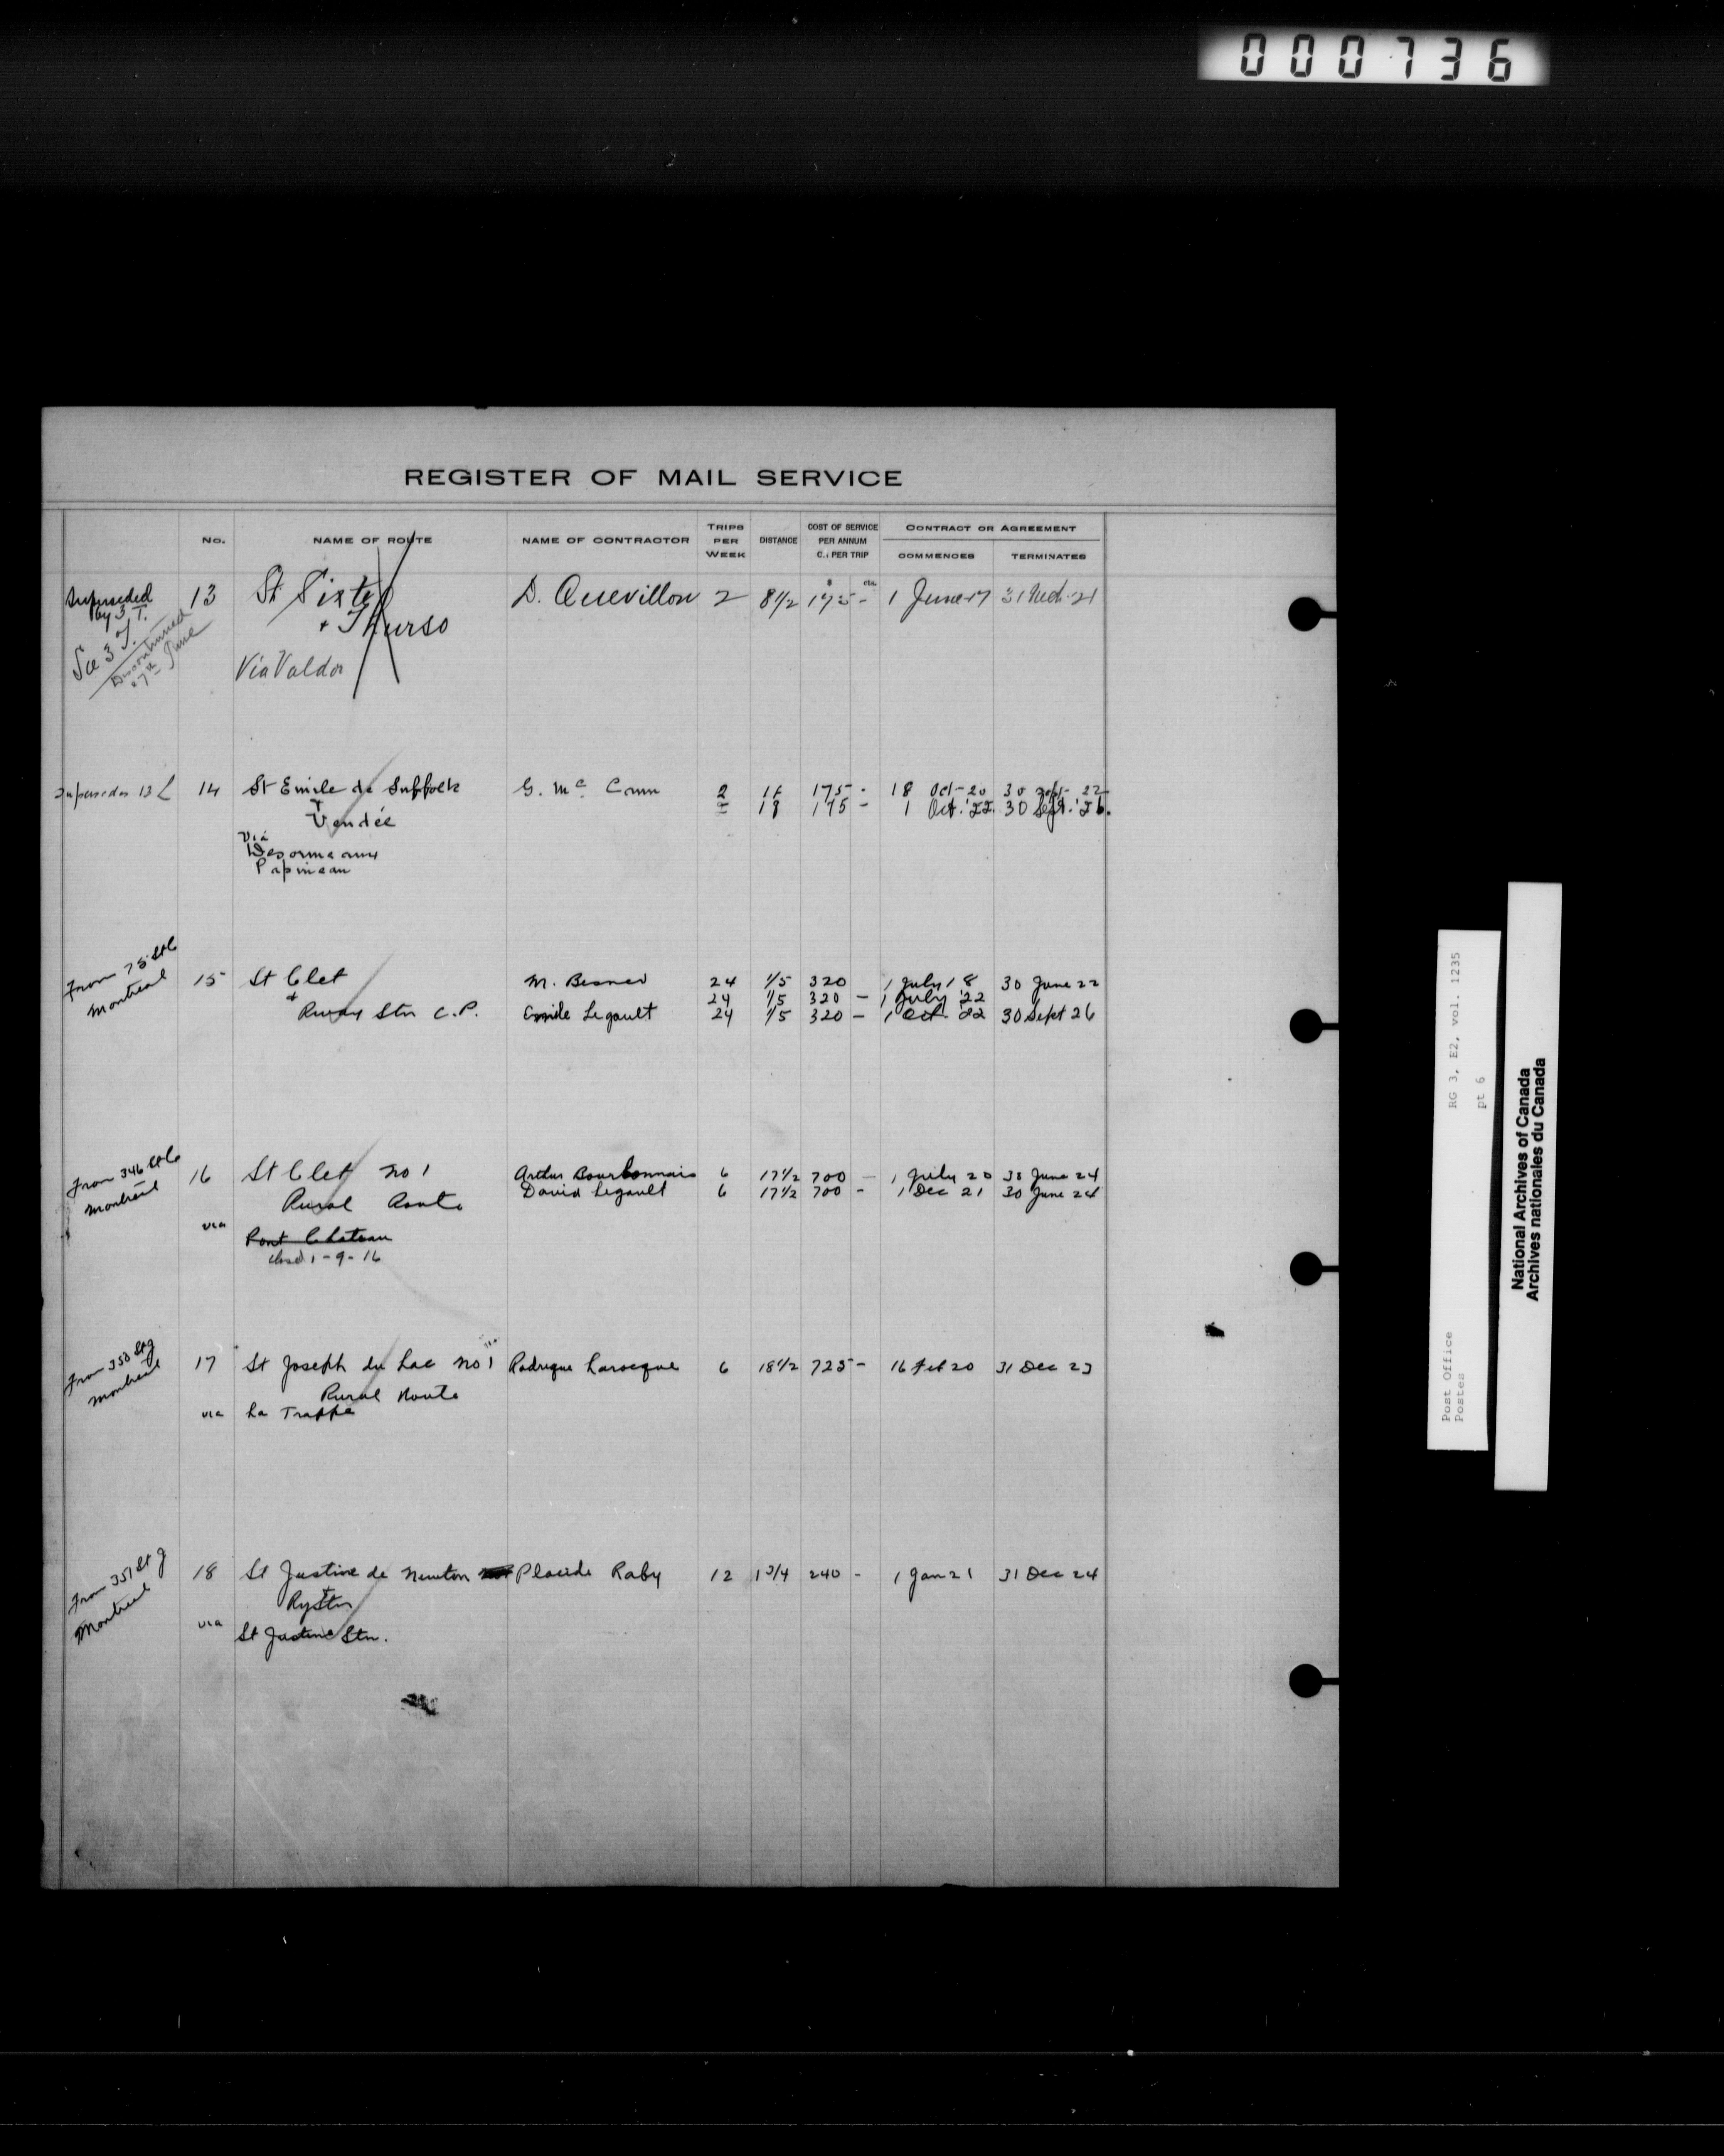 000736
REGISTER OF MAIL SERVICE
No. NAME OF ROUTE NAME OF CONTRACTOR TRIPS PER WEEK DISTANCE COST OF SERVICE PER ANNUM C.: PER TRIP CONTRACT OR AGREEMENT
COMMENCES TERMINATES
Superseded by 3 T.
See 3 T.
Discontinued
7th June
13 St Sixte D. Quevillon 2 8 1/2 175 - 1 June 17 31 Mch. 21
+ Thurso
Via Valdor
Supersedes 13 L 14 St Emile de Suffolk G. Mc Cann 2 18 175 - 18 Oct-20 30 Sept- 22
+ Vendée 18 175 - 1 Oct. '22. 30 Sept. '26.
Via
Desormeaux
Papineau
From 75 St C
Montreal
15 St Clet M. Besner 24 1/5 320 1 July 18 30 June 22
& 24 1/5 320 - 1 July '22
Rway Stn C.P. Emile Legault 24 1/5 320 - 1 Oct. 22 30 Sept 26
From 346 St C
Montreal
16 St Clet No 1 Arthur Bourbonnais 6 17 1/2 700 - 1 July 20 30 June 24
Rural Route David Legault 6 17 1/2 700 - 1 Dec 21 30 June 24
via Pont Chateau
closed 1-9-16
From 350 St J
Montreal
17 St Joseph du Lac No 1 Rodrigue Larocque 6 18 1/2 725 - 16 Feb 20 31 Dec 23
Rural Route
via La Trappe
From 351 St J
Montreal
18 St Justine de Newton Placide Raby 12 1 3/4 240 - 1 Jan 21 31 Dec 24
& Ry Stn
via St Justine Stn.
Post Office
Postes
RG 3, E2, vol. 1235
pt 6
National Archives of Canada
Archives nationales du Canada